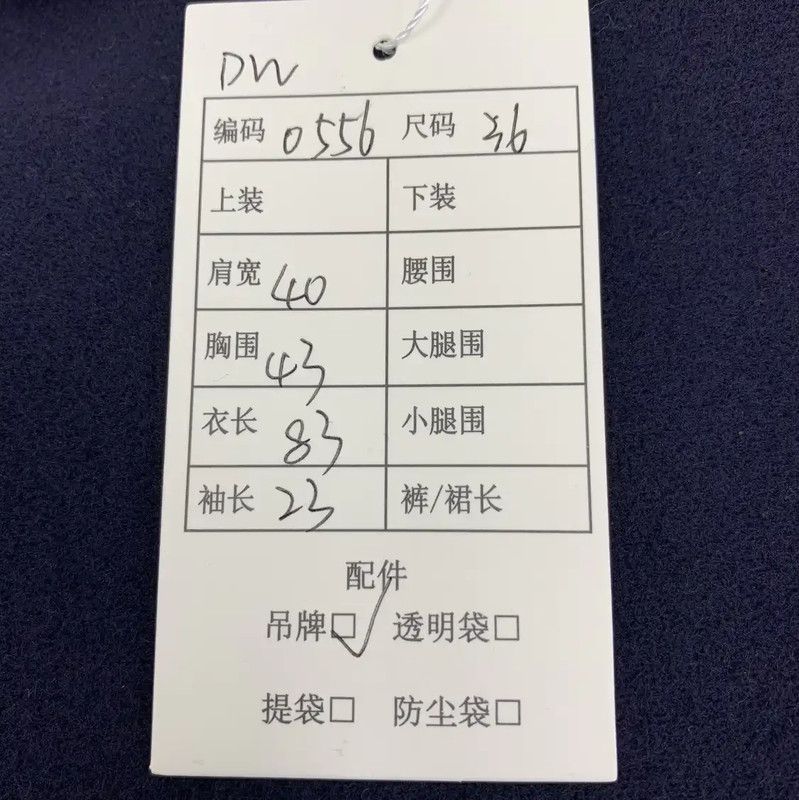 DW
编码 0556 尺码 36
上装 下装
肩宽 40 腰围
胸围 43 大腿围
衣长 83 小腿围
袖长 23 裤/裙长
配件
吊牌☑ 透明袋□
提袋□ 防尘袋□